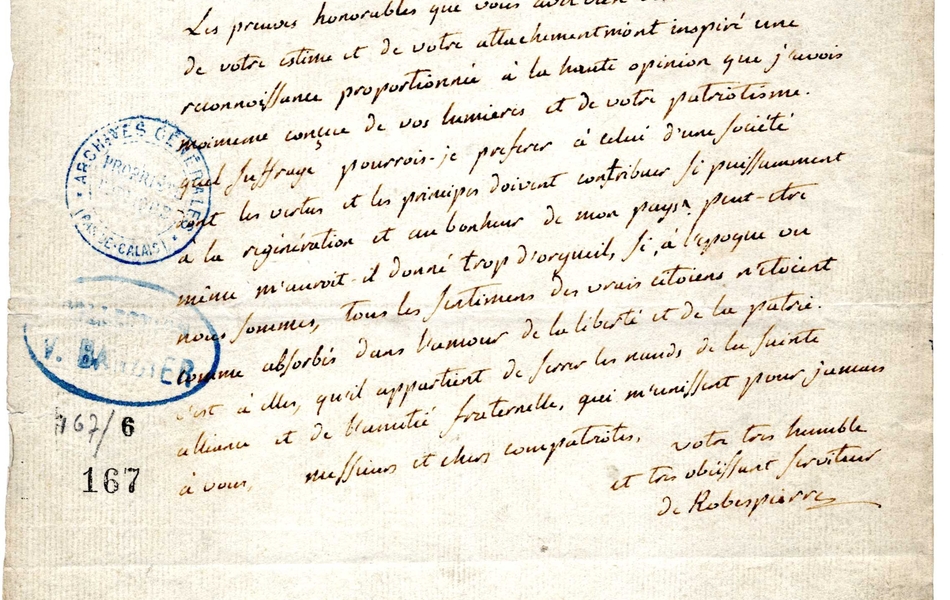 Les preuves honorables que vous
de votre estime et de votre attachement m'ont inspiré une
reconnoissance proportionnée à la haute opinion que j'avois
moimeme conçue de vos lumieres et de votre patriotisme.
quel suffrage pourrois-je preferer à celui d'une société
dont les vertus et les principes doivent contribuer si puissamment
à la régénération et au bonheur de mon pays? peut-etre
même m'auroit-il donné trop d'orgueil, si, à l'époque ou
nous sommes, tous les sentimens des vrais citoiens n'étoient
comme absorbés dans l'amour de la liberté et de la patrie.
c'est à elles, qu'il appartient de serrer les nœuds de la sainte
alliance et de l'amitié fraternelle, qui m'unissent pour jamais
à vous, messieurs et chers compatriotes,
votre tres humble
et tres obéissant serviteur
de Robespierre
ARCHIVES GÉNÉRALES
(PAS-DE-CALAIS)
V. BARBIER
167/6
167